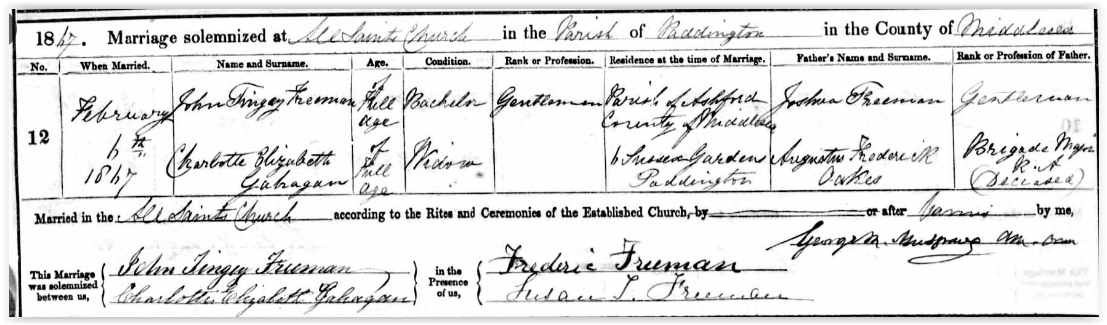 1867. Marriage solemnized at All Saints Church in the Parish of Paddington in the County of Middlesex
No. When Married. Name and Surname. Age. Condition. Rank or Profession. Residence at the time of Marriage. Father's Name and Surname. Rank or Profession of Father.
12
February
6th
1867
John Tingey Freeman
of
Full
age
Bachelor
Gentleman
Parish of Ashford
County of Middlesex
Joshua Freeman
Gentleman
Charlotte Elizabeth
Gahagan
of
Full
age
Widow
6 Sussex Gardens
Paddington
Augustus Frederick
Oakes
Brigade Major
R. A
(Deceased)
Married in the All Saints Church according to the Rites and Ceremonies of the Established Church, by or after Banns by me,
George M. Musgrave
This Marriage
was solemnized
between us,
John Tingey Freeman
Charlotte Elizabeth Gahagan
in the
Presence
of us,
Frederic Freeman
Susan T. Freeman